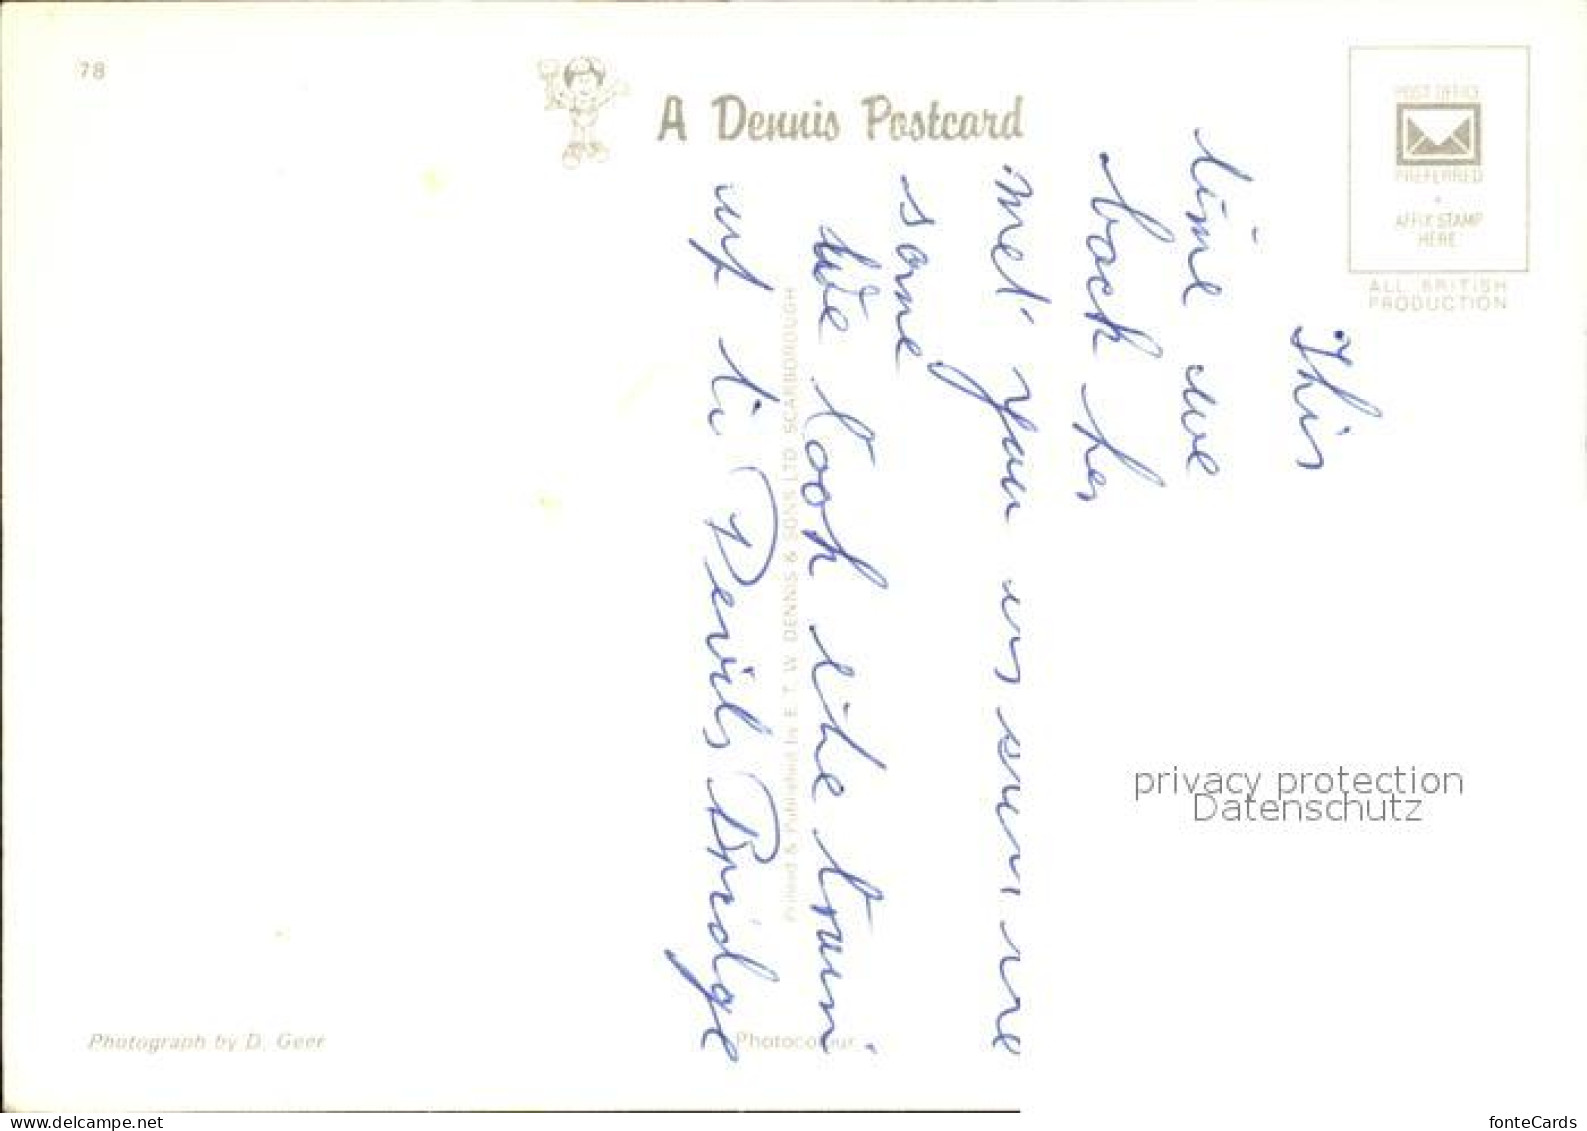 78
A Dennis Postcard
POST OFFICE
PREFERRED
AFFIX STAMP
HERE
ALL BRITISH
PRODUCTION
This
time we
back her
met you
some
We took the train
up to Devils Bridge
Printed & Published by E. T. W. DENNIS & SONS LTD SCARBOROUGH
privacy protection
Datenschutz
Photograph by D. Geer
Photocolour
www.delcampe.net
fonteCards